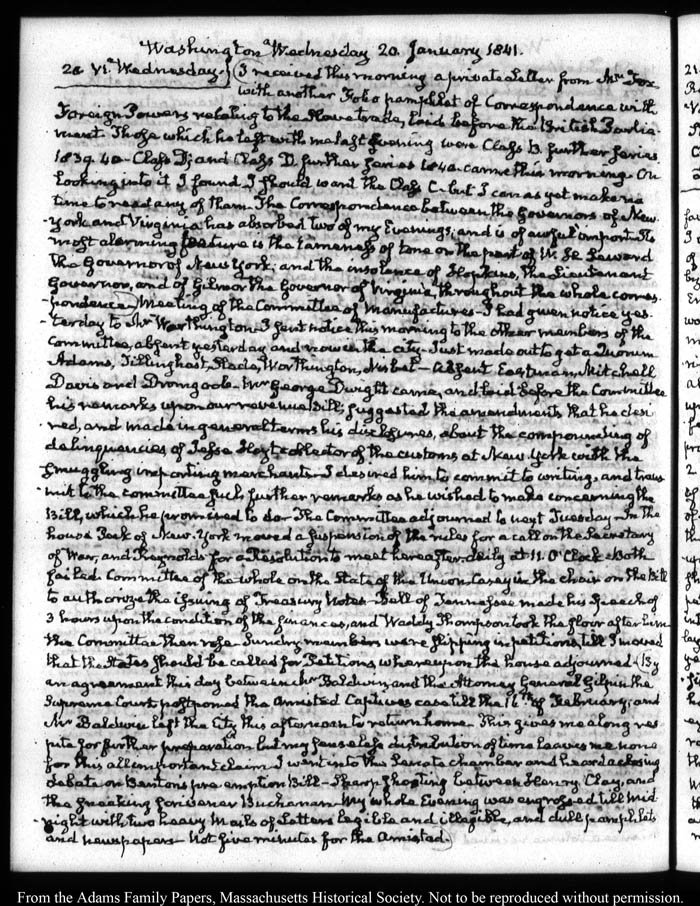 Washington Wednesday 20. January 1841.
20. VI. Wednesday. I received this morning a private Letter from Mr Fox
with another Folio pamphlet of Correspondence with
Foreign Powers relating to the slave trade, laid before the British Parlia-
ment. Those which he left with me last Evening were Class B. further series
1839. 40 Class D; and Class D. further series 1840. came this morning. On
looking into it I found I should want the Class C. but I can as yet make no
time to read any of them. The Correspondence between the Governors of New-
York and Virginia has absorbed two of my Evenings; and is of awful import. Its
most alarming feature is the tameness of tone on the part of W. H. Seward
the Governor of New York; and the insolence of Hopkins, the Lieutenant
Governor, and of Gilmer the Governor of Virginia, throughout the whole corres-
pondence. Meeting of the Committee of Manufactures. I had given notice yes-
terday to Mr Worthington. I sent notice this morning to the other members of the
Committee, absent yesterday and now in the city. Just made out to get a Quorum
Adams, Tillinghast, Slade, Worthington, Nisbet — absent Eastman, Mitchell
Davis and Dromgoole. Mr George Dwight came, and laid before the Committee
his remarks upon our revenue Bill; suggested the amendments that he desi-
red, and made in general terms his disclosures, about the compounding of
delinquencies of Jesse Hoyt collector of the customs at New York with the
smuggling importing merchants. I desired him to commit to writing, and trans-
mit to the committee such further remarks as he wished to make concerning the
Bill, which he promised to do. The Committee adjourned to next Tuesday. In the
house Peck of New-York moved a suspension of the rules for a call on the Secretary
of War, and Reynolds for a Resolution to meet hereafter daily at 11. O'Clock. Both
failed. Committee of the whole on the State of the Union Casey in the chair on the Bill
to authorize the issuing of Treasury Notes. Bell of Tennessee made his Speech of
3 hours upon the condition of the finances, and Waddy Thompson took the floor after him
The Committee then rose. Sundry members were slipping in petitions, till I moved
that the States should be called for Petitions, whereupon the house adjourned. By
an agreement this day between Mr Baldwin, and the Attorney General Gilpin the
Supreme Court postponed the Amistad Captives case till the 16th of February; and
Mr Baldwin left the City this afternoon to return home. This gives me a long res-
pite for further preparation but my senseless distribution of time leaves me none
for this all important claim. I went into the Senate chamber and heard a closing
debate on Benton's pre-emption Bill — Sharp shooting between Henry Clay, and
the sneaking scrivener Buchanan. My whole Evening was engrossed till mid-
night with two heavy Mails of Letters legible and illegible, and dull pamphlets
and newspapers — Not five minutes for the Amistad.
From the Adams Family Papers, Massachusetts Historical Society. Not to be reproduced without permission.